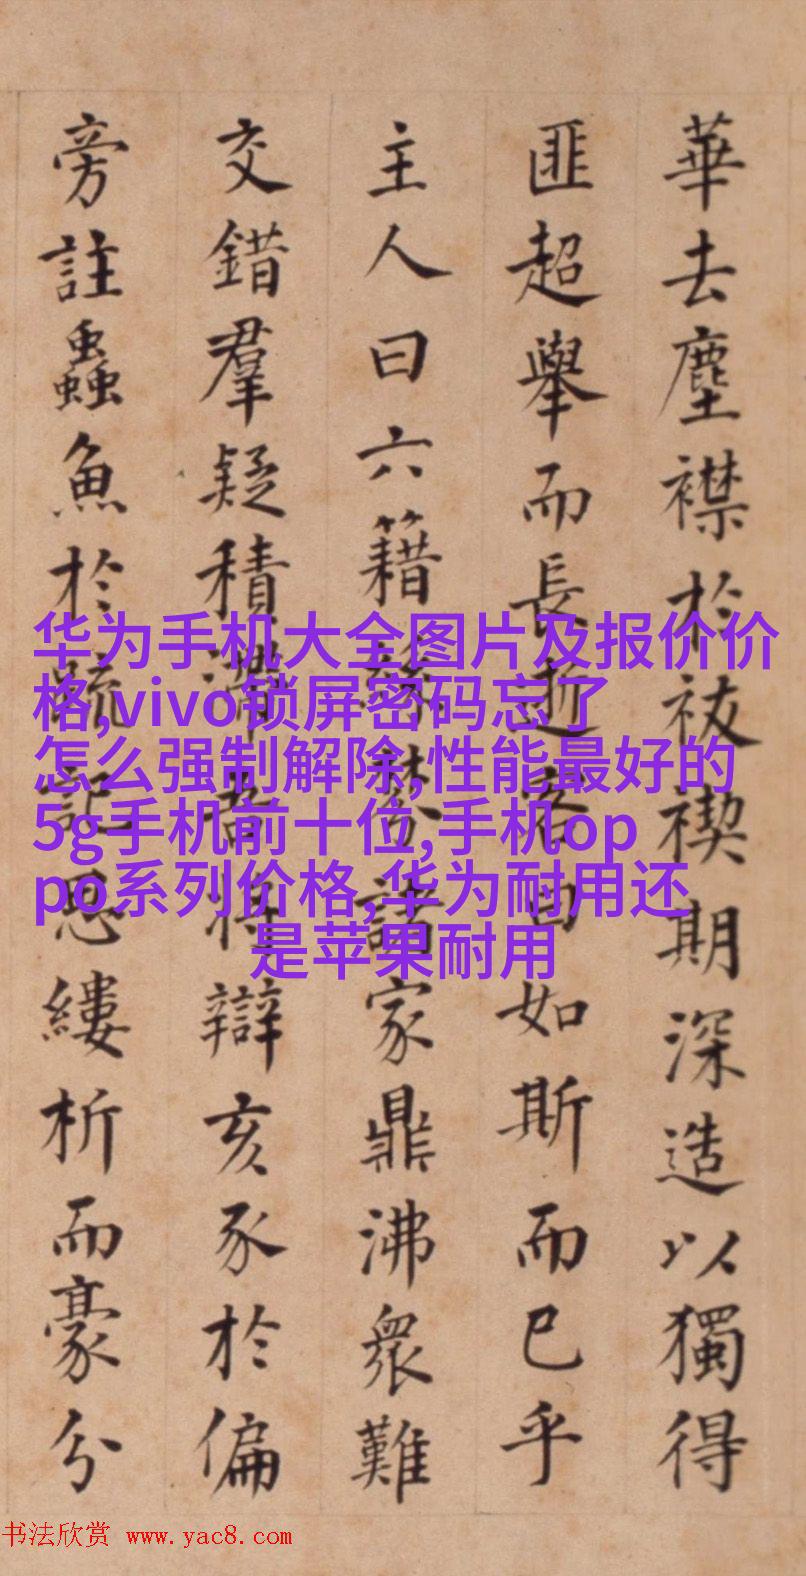 華去塵襟於祓禊期深造以獨得
匪超舉而長逝客曰如斯而已乎
主人曰六籍棼諸家鼎沸眾難
交錯羣疑積滯將辯亥豕於偏
旁註蟲魚於疏記思縷析而豪分
华为手机大全图片及报价价
格,vivo锁屏密码忘了
怎么强制解除,性能最好的
5g手机前十位,手机op
po系列价格,华为耐用还
是苹果耐用
书法欣赏 www.yac8.com